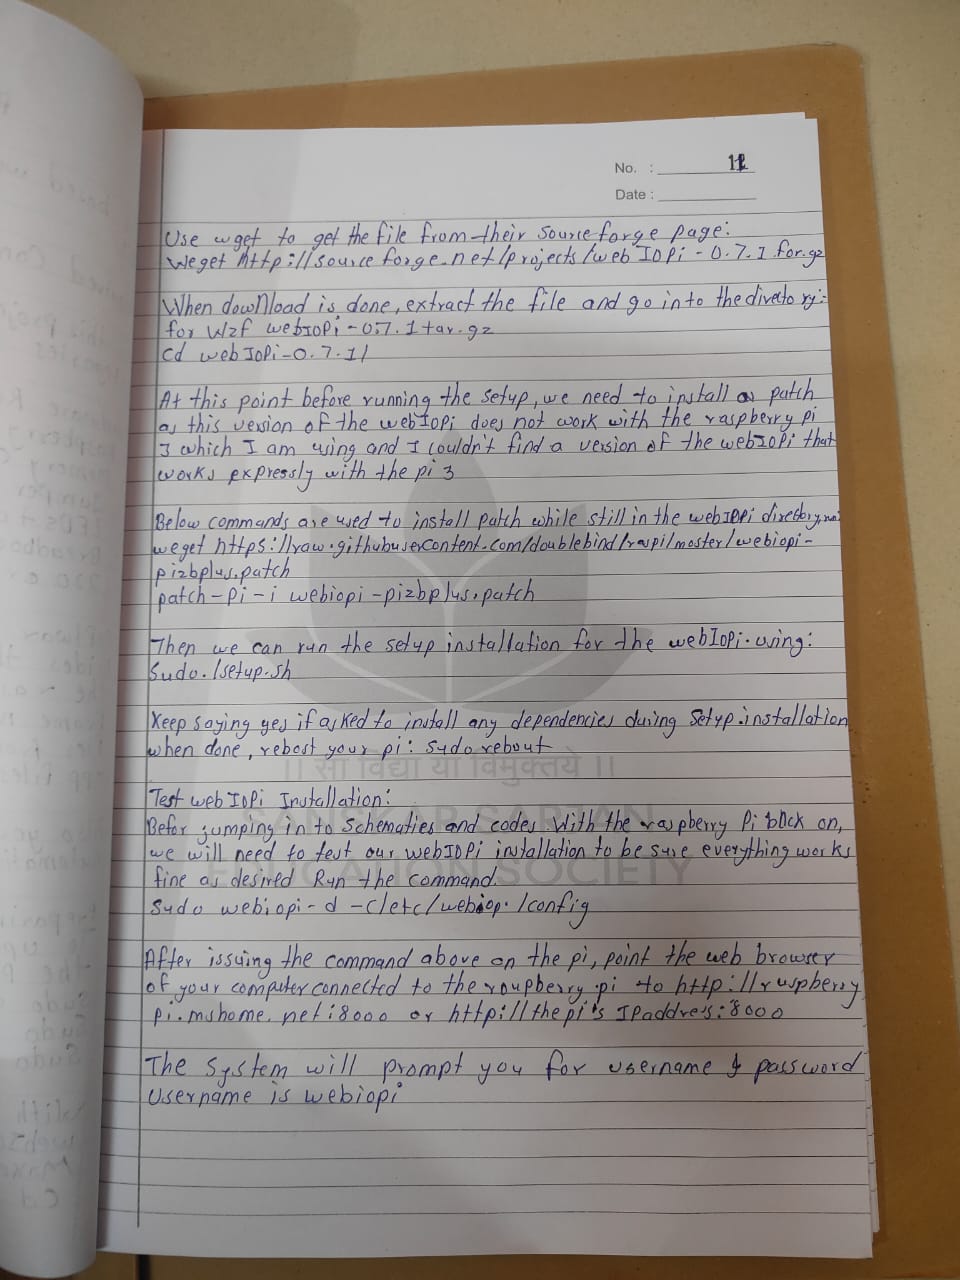 No. : 12
Date :
Use wget to get the file from their sourceforge page:
Weget http://source forge.net/projects/web IOPi - 0.7.1.for.gz
When download is done, extract the file and go into the divecto ry:
for Wzf webIOPi-0.7.1 tar.gz
Cd web IoPi-0.7.1/
At this point before running the setup, we need to install a patch
as this vesion of the webIopi does not work with the raspberry pi
3 which I am using and I couldn't find a version of the webIoPi that
works expressly with the pi 3
Below commands are used to install patch while still in the webIoPi directory
weget https://raw.githubusercontent.com/doublebind/raspi/master/webiopi-
pi2bplus.patch
patch-Pi-i webiopi-pi2bplus.patch
Then we can run the setup installation for the webIoPi.using:
Sudo./setup.sh
Keep saying yes if asked to install any dependencies during setup.installation
when done, reboot your pi: sudo rebout
|| सा विद्या या विमुक्तये ||
Test web IoPi Installation:
SANSKAR SARJAN
Befor jumping in to schematies and codes. With the raspberry Pi back on,
we will need to test our webIoPi installation to be sure everything works
EDUCATION SOCIETY
fine as desired Run the command.
Sudo webiopi-d -c/etc/webiop. /config
After issuing the command above on the pi, point the web browser
of your computer connected to the roupberry pi to http://ruspberry
Pi.mshome.net:8000 or http://thepi's IPaddress:8000
The system will prompt you for username & password
Username is webiopi